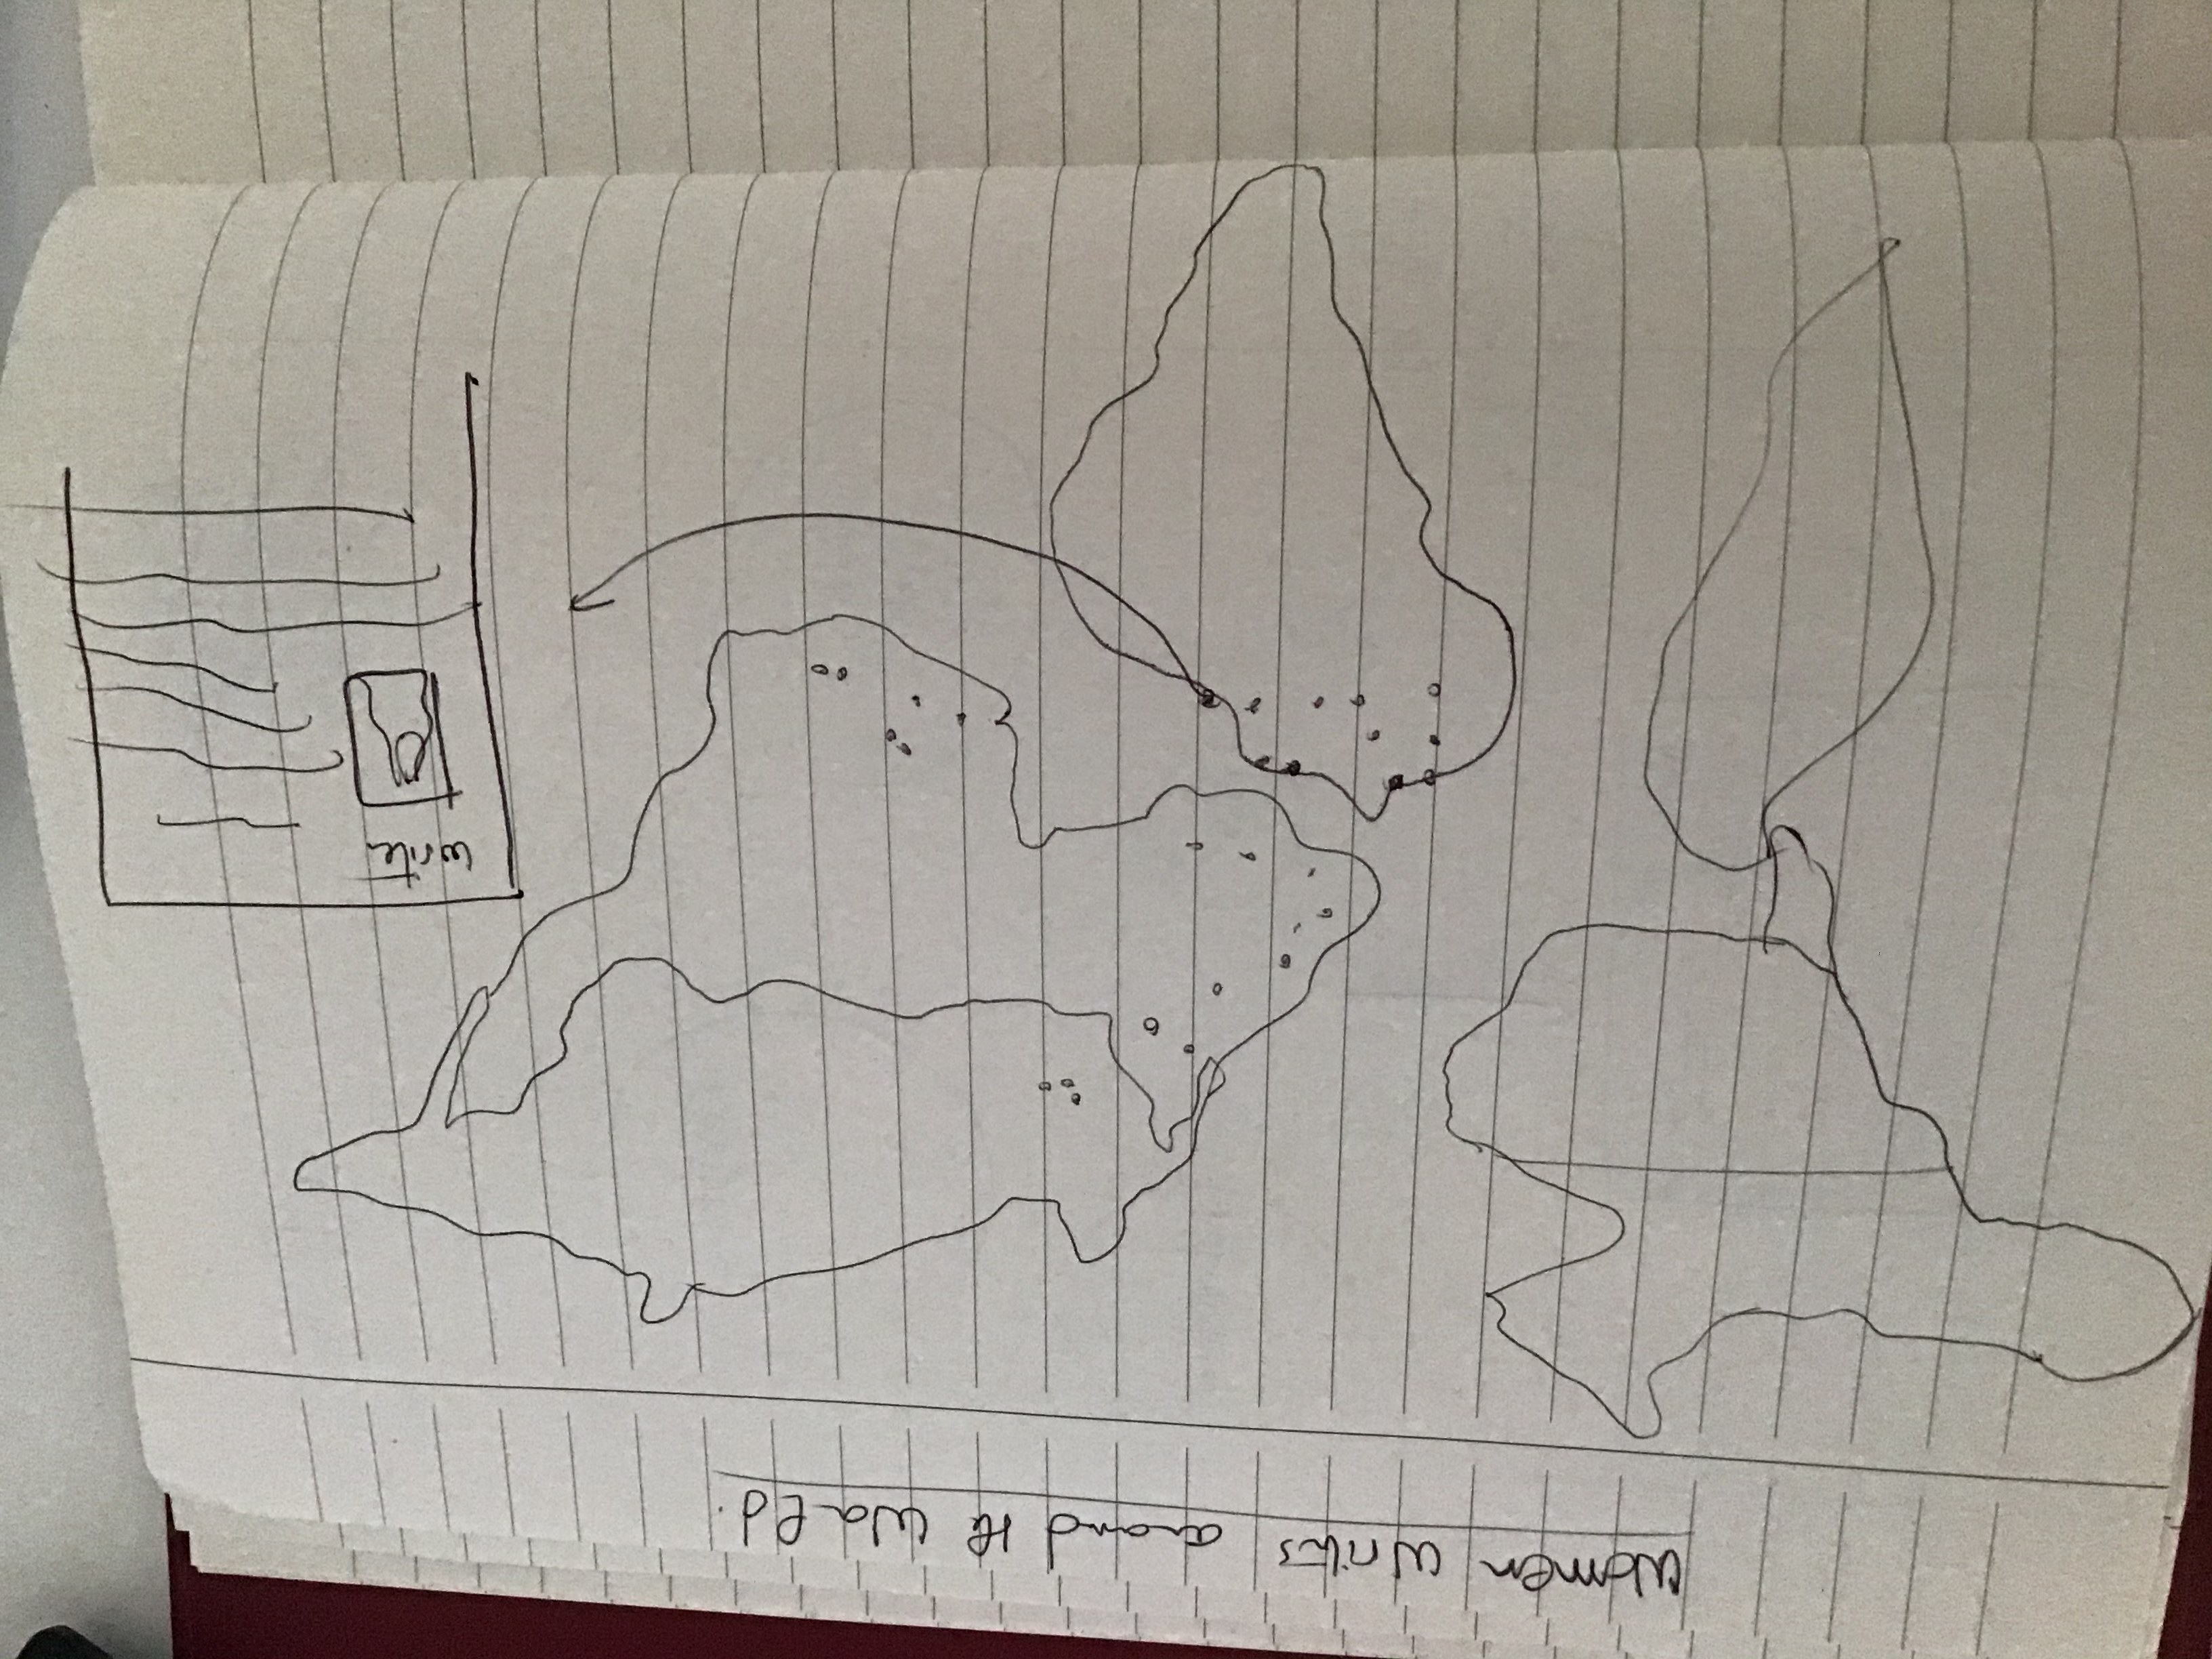 Women Writers around the World.
writer